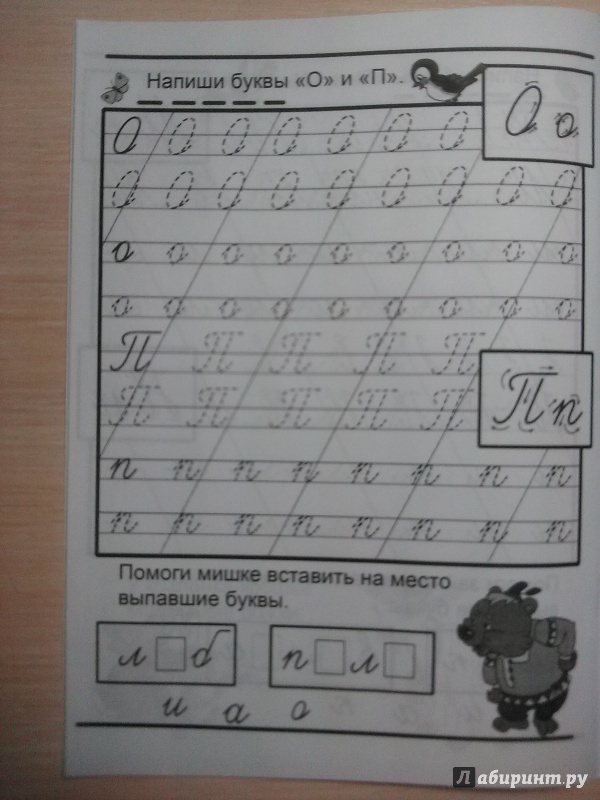 Напиши буквы «О» и «П».
О О О О О О О О о
О О О О О О О О О
о о о о о о о о о
о о о о о о о о о
П П П П П
П П П П П П п
п п п п п п п п
п п п п п п п п
Помоги мишке вставить на место
выпавшие буквы.
л б п л
и а о
Лабиринт.ру